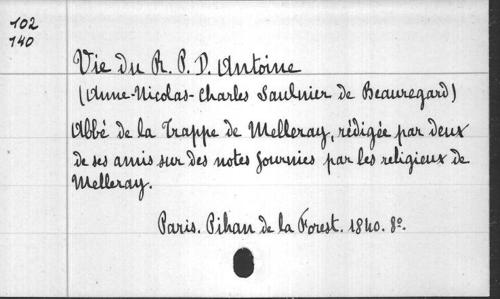 102
140
Vie du R. P. D. Antoine
(Anne-Nicolas-Charles Saulnier de Beauregard)
Abbé de la Trappe de Melleray, rédigée par deux
de ses amis sur des notes fournies par les religieux de
Melleray.
Paris. Pihan de la Forest. 1840. 8º.